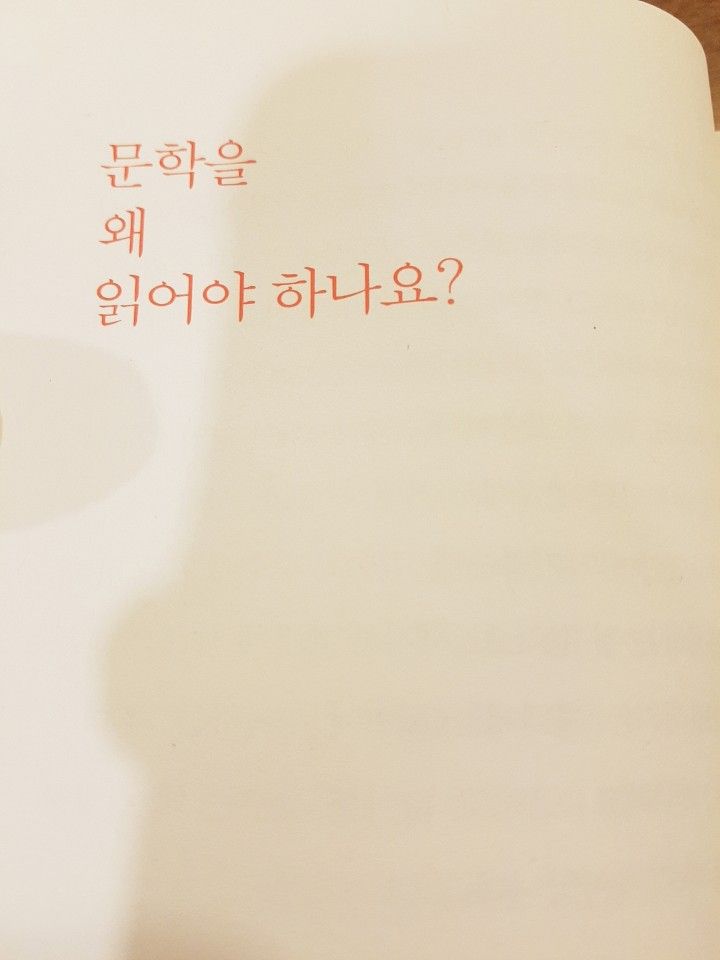 문학을
왜
읽어야 하나요?